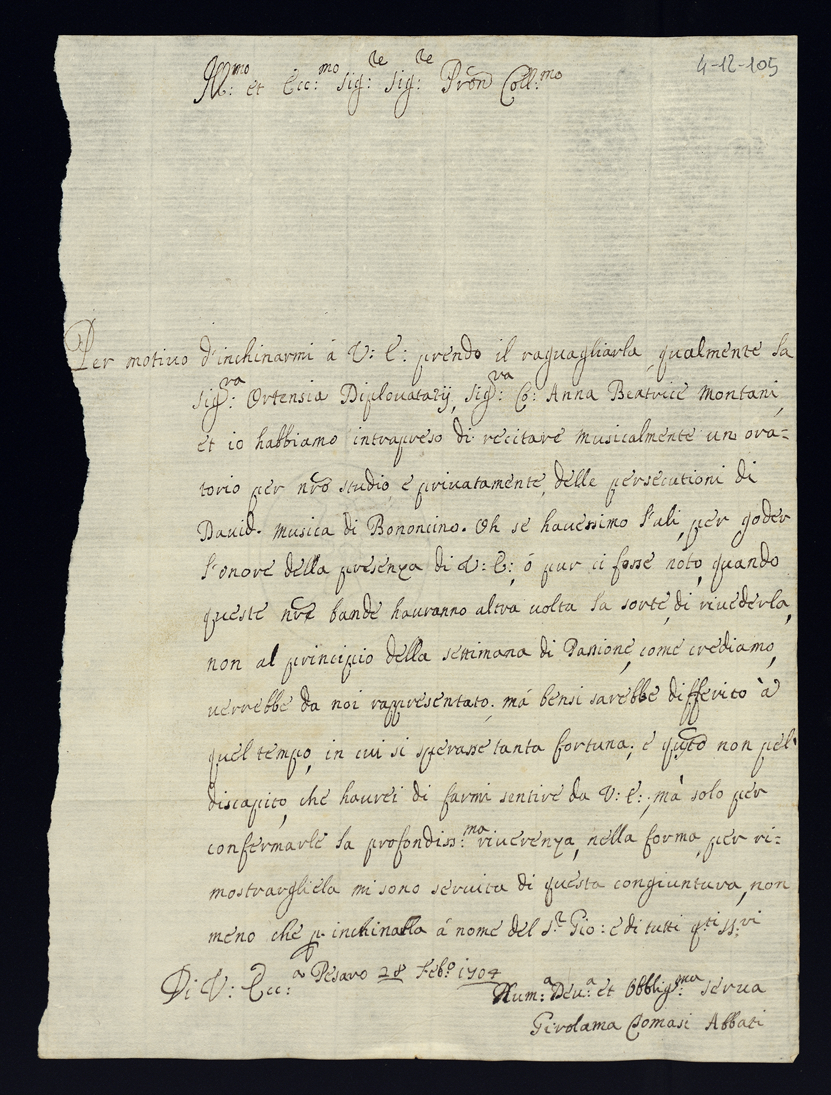 4-12-105
Ill:mo et Ecc:mo Sig:re Sig:re Pron Coll:mo
Per motivo d'inchinarmi à V: E: prendo il raguagliarla, qualmente la
Sig:ra Ortensia Diplovatazij, Sig:ra Co: Anna Beatrice Montani,
et io habbiamo intrapreso di recitare musicalmente un ora=
torio per nro studio, e privatamente, delle persecutioni di
David. musica di Bononcino. Oh se havessimo l'ali, per goder
l'onore della presenza di V: E:, ó pur ci fosse noto, quando
queste nre bande havranno altra volta la sorte, di riverderla,
non al principio della settimana di Passione, come crediamo,
verrebbe da noi rappresentato; má bensi sarebbe differito à
quel tempo, in cui si sperasse tanta fortuna; e qsto non pel
discapito, che havrei di farmi sentire da V: E:, mà solo per
confermarle la profondiss:ma riverenza, nella forma, per ri=
mostrargliela mi sono servita di questa congiuntura, non
meno che p inchinalla á nome del S.r Gio: e di tutti q.ti SS:ri
Di V: Ecc:a Pesaro 28 Feb.o 1704
Hum:a Dev:a et Obblig:ma serva
Girolama Comasi Abbati